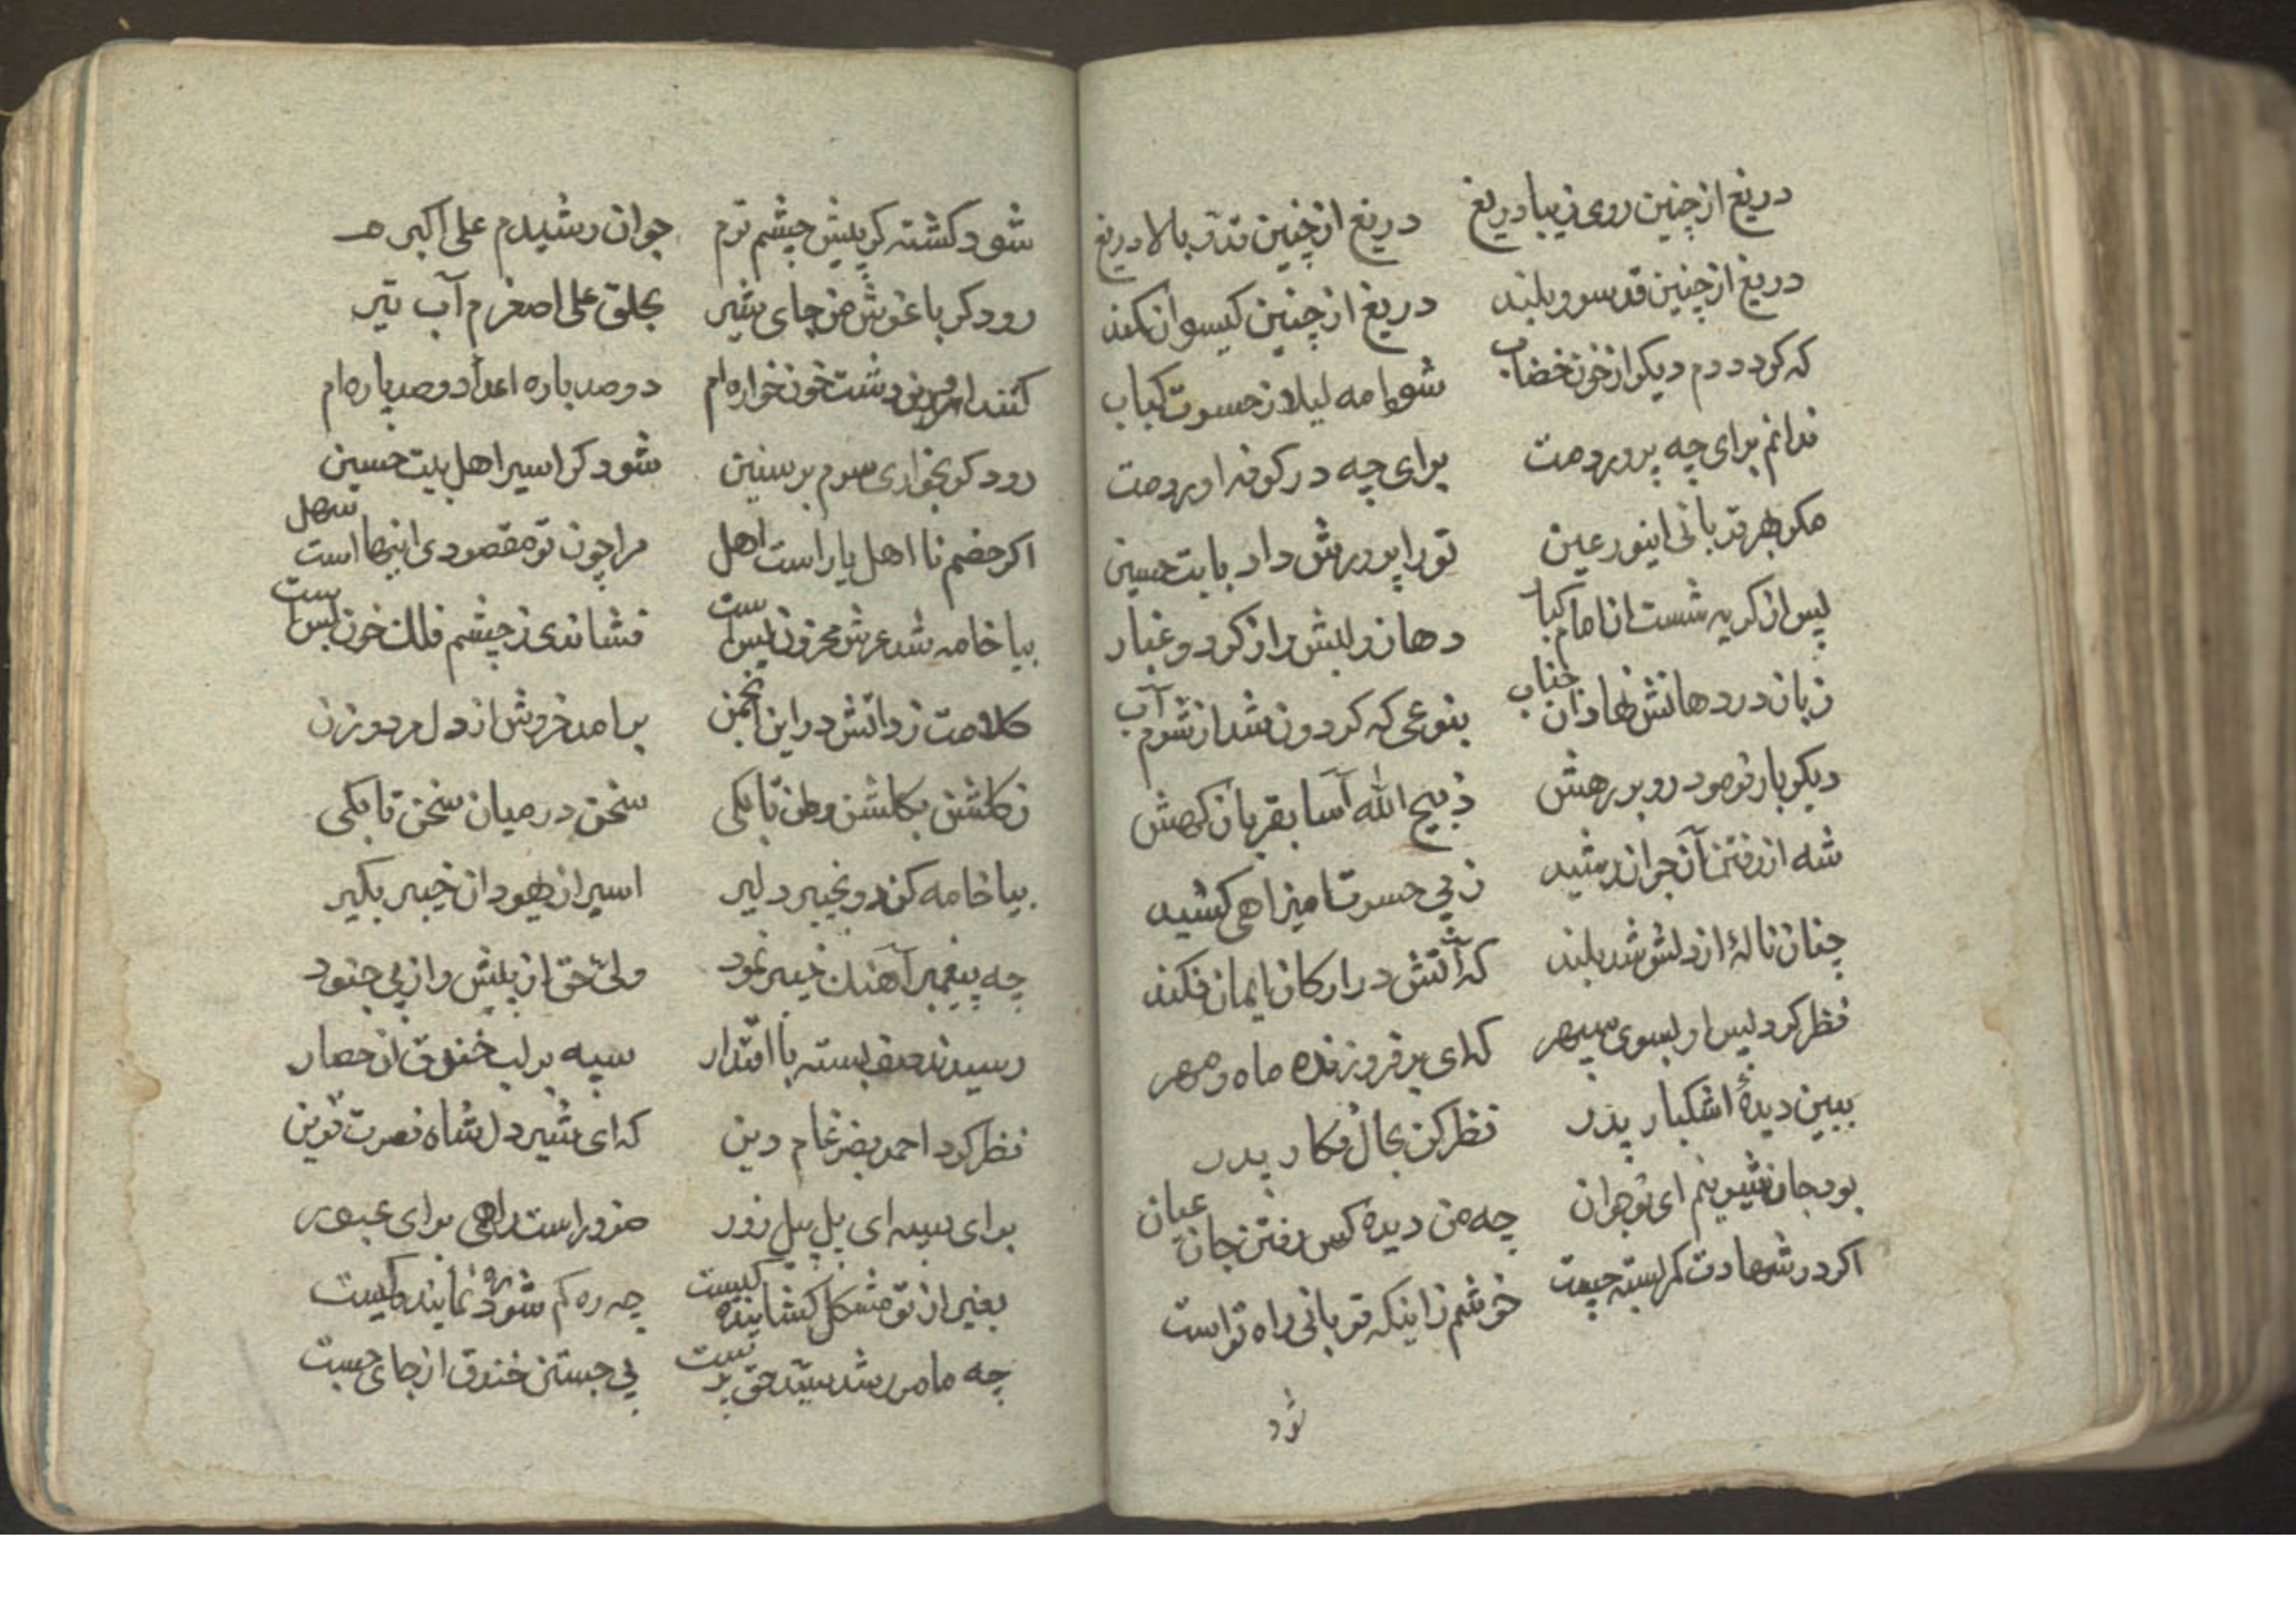 دریغ از چنین روی زیبا دریغ دریغ از چنین قدّ بالا دریغ
دریغ از چنین قد سرو بلند دریغ از چنین کیسوان کمند
که کردد دم دیکر از خون خضاب شود مه لیلا ز حسرت کباب
ندانم برای چه پروردمت برای چه در کوفه اوردمت
مکر بهر قربانی اینور عین تو را پرورش داد بابت حسین
پس از کریه شست ان امام کبار دهان و لبش را ز کرد و غبار
زبان در دهانش نهاد ان جناب بنوعی که کردون شد از شرم آب
دیکر بار فرمود رو بر رهش ذبیح الله آسا بقربان کهش
شه از رفتن آن جوان رشید ز پی حسرت امیز اهی کشید
چنان نالهٔ از دلش شد بلند که آتش در ارکان ایمان فکند
نظر کرد پس او بسوی سپهر که ای بر فروزنده ماه و مهر
ببین دیدهٔ اشکبار پدر نظر کن بحال فکار پدر
بود جان شیرینم ای نوجوان چه من دیده کس رفتن جان عیان
اکر در شهادت کمر بسته چست خوشم زاینکه قربانی راه تو است
شود
شود کشته کر پیش چشم ترم جوان رشیدم علی اکبرم
رود کر باغوش من جای شیر بحلق علی اصغرم آب تیر
کنند ار در این دشت خونخواره ام دو صد باره اعدا دو صد پاره ام
رود کر بخواری سرم بر سنین شود کر اسیر اهل بیت حسین
اکر خصم نا اهل یار است اهل مرا چون تو مقصودی اینها است سهل
بیا خامه شد عرش محزون بس است فشاندی ز چشم فلک خون بس است
کلامت زد اتش در این انجمن برامد خروش از دل مرد و زن
ز کلشن بکلشن وطن تا بکی سخن در میان سخن تا بکی
بیا خامه کن دو بخیبر دلیر اسیر از یهودان خیبر بکیر
چه پیغمبر آهنک خیبر نمود ولیّ حق از پیش و از پی جنود
رسیدند صف بسته با اقتدار سپه بر لب خندق ان حصار
نظر کرد احمد بضرغام دین که ای شیر دل شاه نصرت قرین
برای سپه ای یل پیل زور ضرور است راهی برای عبور
بغیر از تو مشکل کشاینده کیست چه ره کم شود ره نماینده کیست
چه مامور شد سیّد حق پرست پی جستن خندق از جای جست